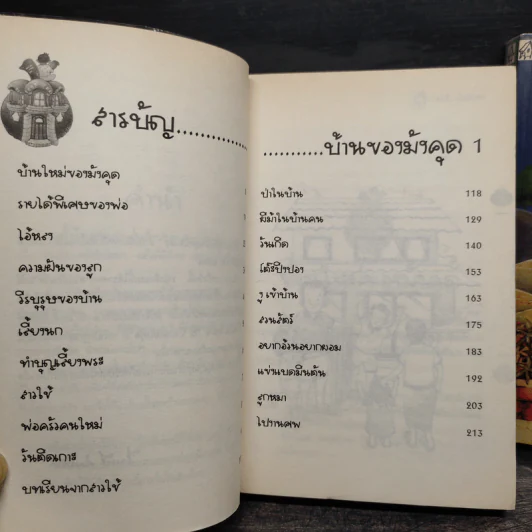 สารบัญ..............
บ้านใหม่ของมังคุด
รายได้พิเศษของพ่อ
ไอ้หรั่ง
ความฝันของลูก
วีรบุรุษของบ้าน
เลี้ยงนก
ทำบุญเลี้ยงพระ
สาวใช้
พ่อครัวคนใหม่
วันติดเกาะ
บทเรียนจากสาวใช้
...........บ้านของมังคุด 1
ป่าในบ้าน 118
ผีม้าในบ้านคน 129
วันเกิด 140
โต๊ะปิงปอง 153
งูเข้าบ้าน 163
สวนสัตว์ 175
อยากอ้วนอยากผอม 183
แข่นแบดมินตัน 192
ลูกหมา 203
โปงานศพ 213